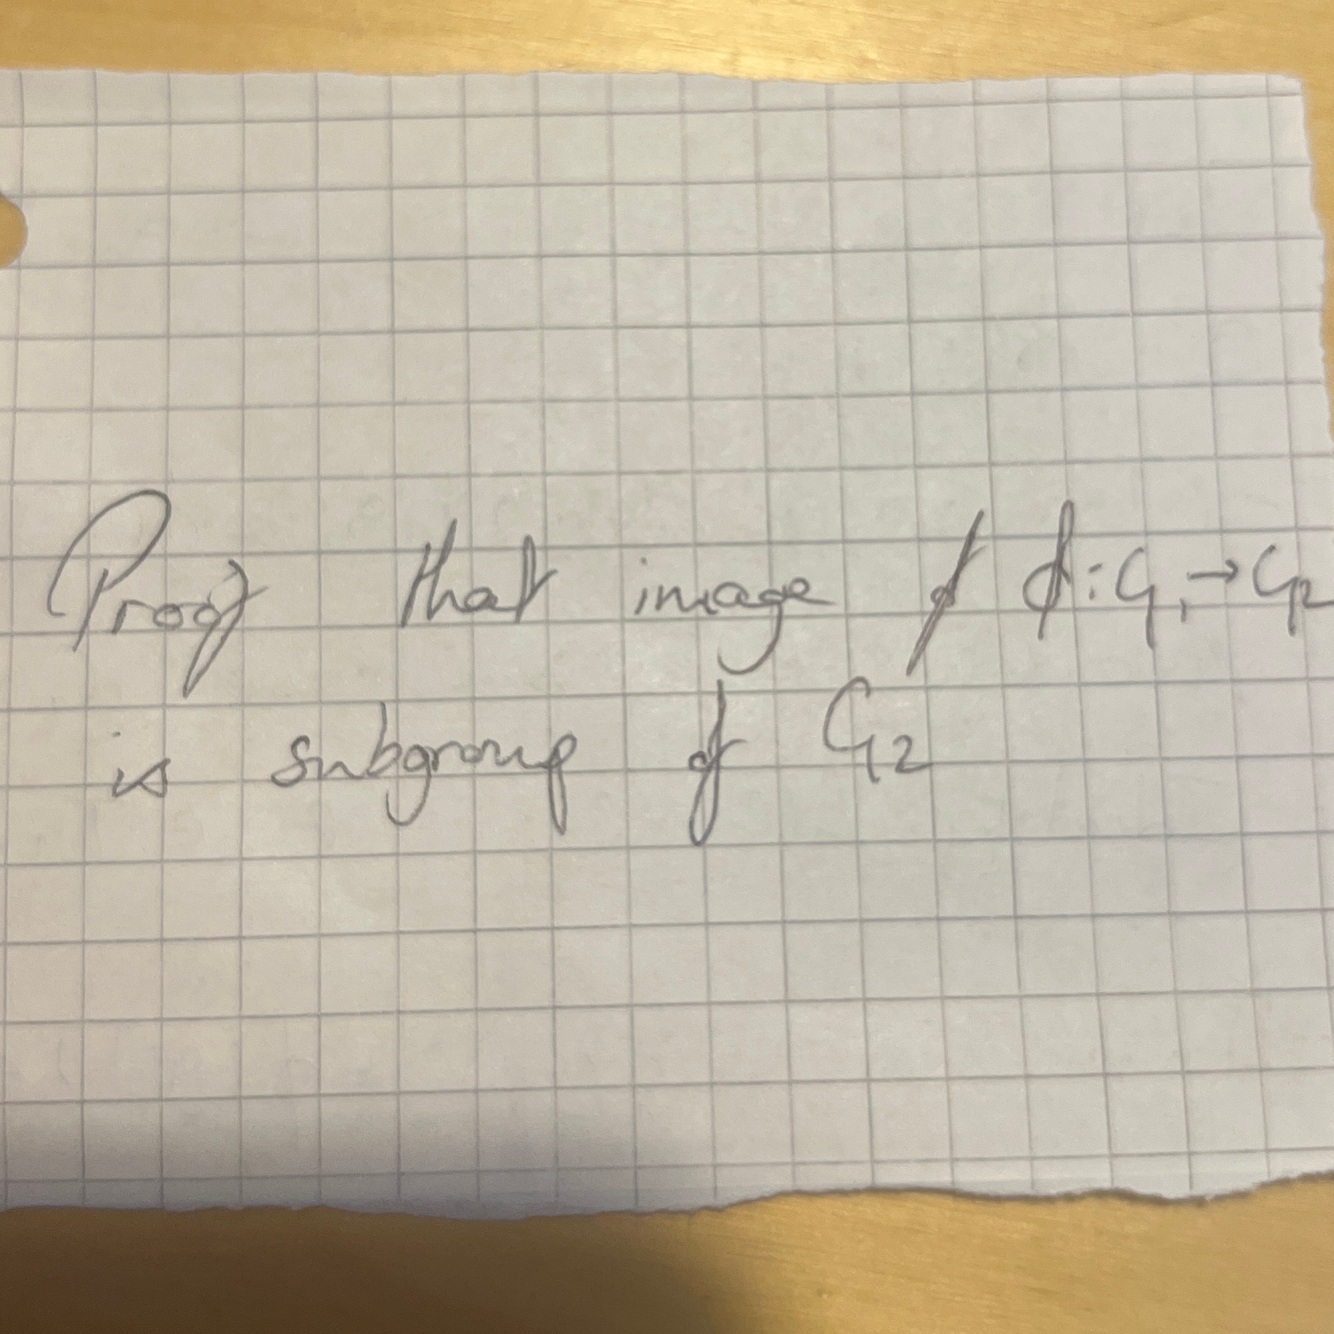 Proof that image of ϕ: G₁ → G₂
is subgroup of G₂